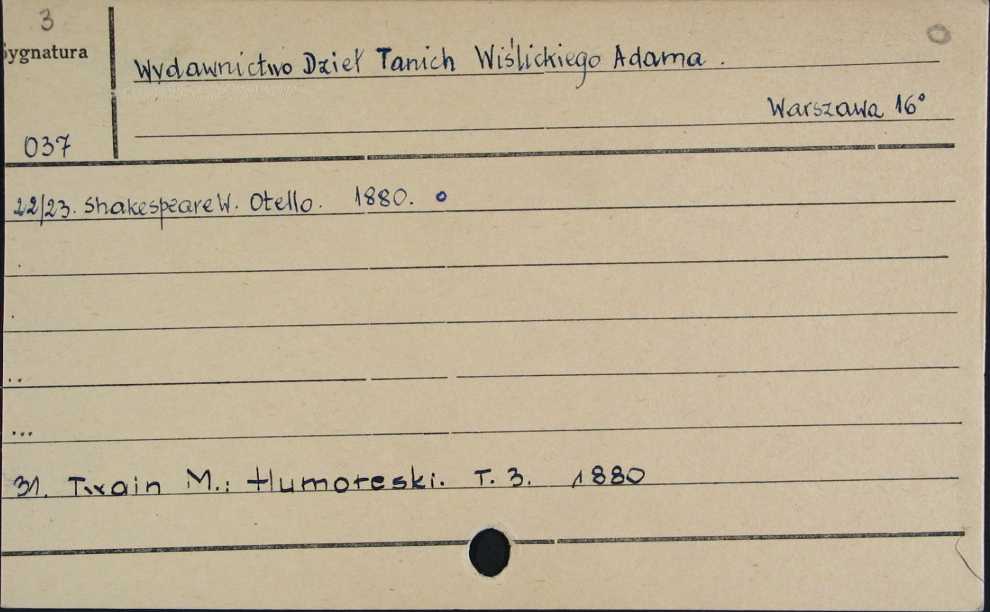 3
Sygnatura
Wydawnictwo Dzieł Tanich Wiślickiego Adama.
Warszawa 16°
037
22/23. Shakespeare W. Otello. 1880. o
.
.
..
...
31. Twain M.: Humoreski. T. 3. 1880